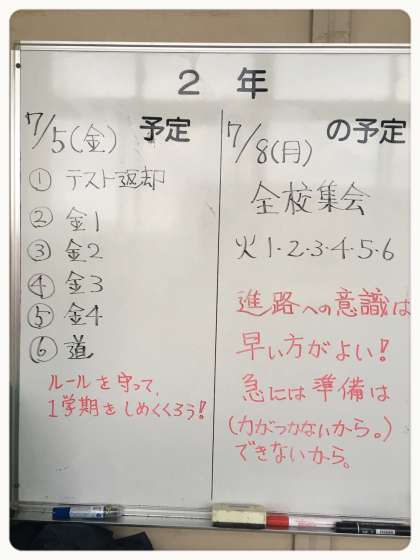 2 年
7/5(金) 予定
① テスト返却
② 金1
③ 金2
④ 金3
⑤ 金4
⑥ 道
ルールを守って、
1学期をしめくくろう!
7/8(月) の予定
全校集会
火1・2・3・4・5・6
進路への意識は
早い方がよい!
急には準備は
(力がつかないから。)
できないから。